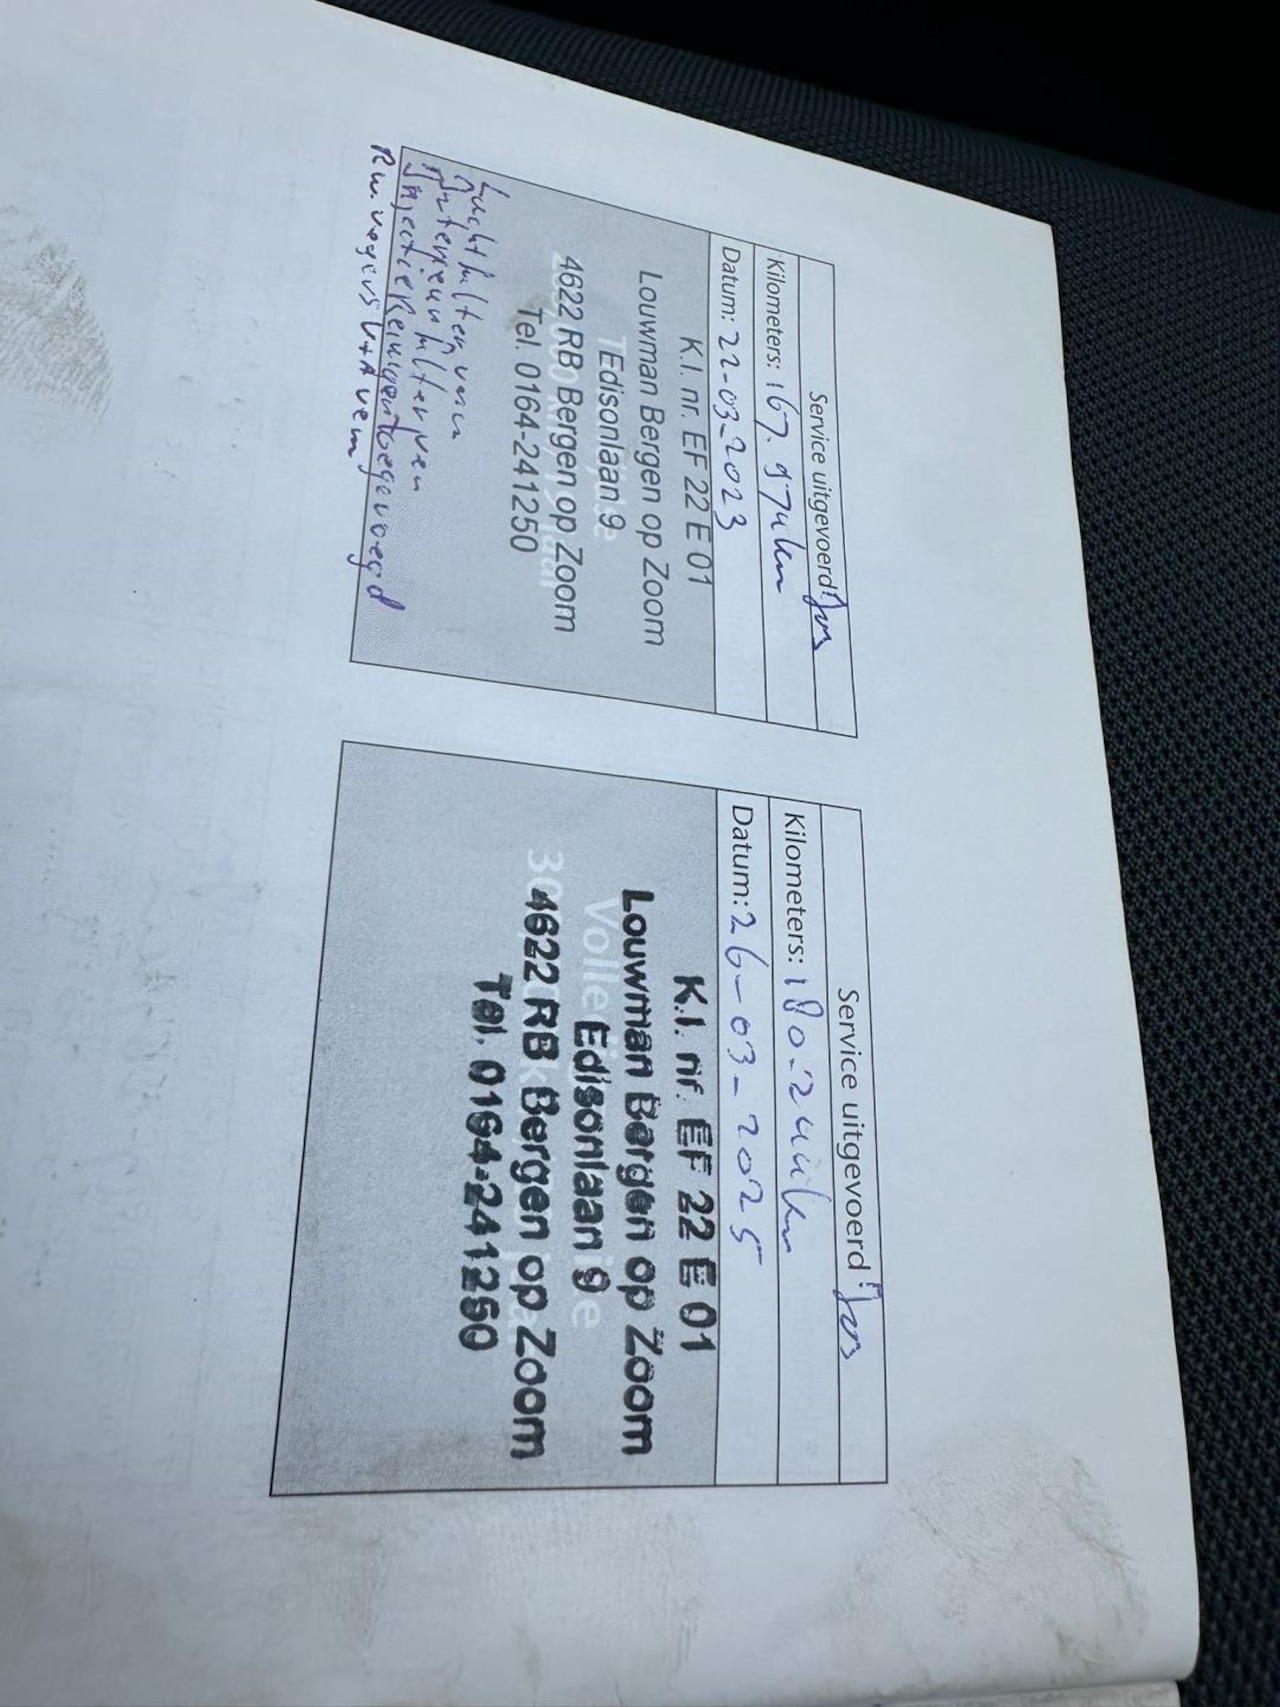 Service uitgevoerd
Kilometers:
Datum: 22-03-2023
K.I. nr. EF 22 E 01
Louwman Bergen op Zoom
Edisonlaan 9
4622 RB Bergen op Zoom
Tel. 0164-241250
Luchtfilter verv
Interieurfilter verv
Injectiereiniger toegevoegd
Service uitgevoerd
Kilometers:
Datum: 26-03-2025
K.I. nr. EF 22 E 01
Louwman Bergen op Zoom
Edisonlaan 9
4622 RB Bergen op Zoom
Tel. 0164-241250